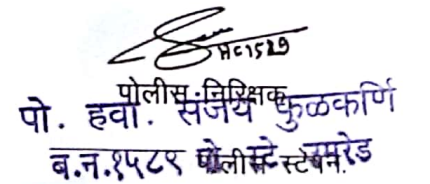 HC1589
पोलीस निरिक्षक
पो. हवा. संजय कुळकर्णि
ब.न.१५८९ पो. स्टे उमरेड
पोलीस स्टेशन.